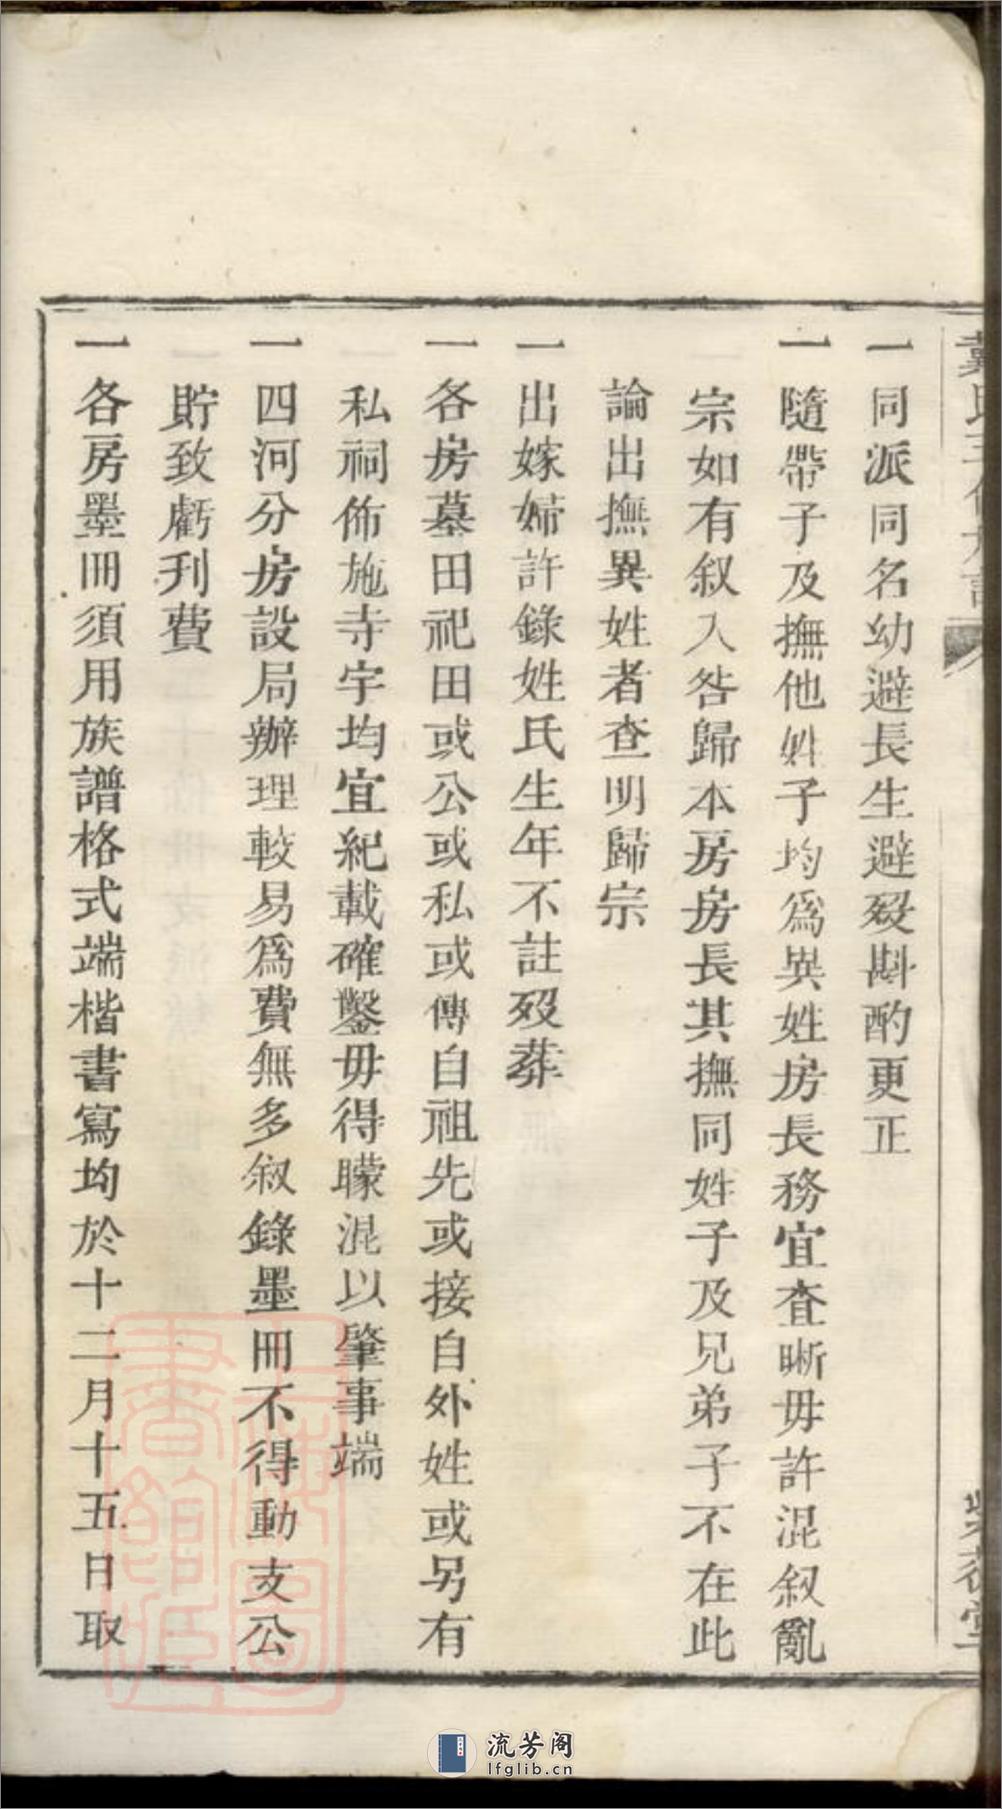 一同派同名幼避長生避歿斟酌更正
一隨帶子及撫他姓子均爲異姓房長務宜查晰毋許混叙亂
宗如有叙入咎歸本房房長其撫同姓子及兄弟子不在此
論出撫異姓者查明歸宗
一出嫁婦許錄姓氏生年不註歿葬
一各房墓田祀田或公或私或傳自祖先或接自外姓或另有
私祠佈施寺宇均宜紀載確鑿毋得矇混以肇事端
一四河分房設局辦理較易爲費無多叙錄墨冊不得動支公
貯致虧刋費
一各房墨冊須用族譜格式端楷書寫均於十二月十五日取
上海圖書館藏
流芳阁
lfglib.cn